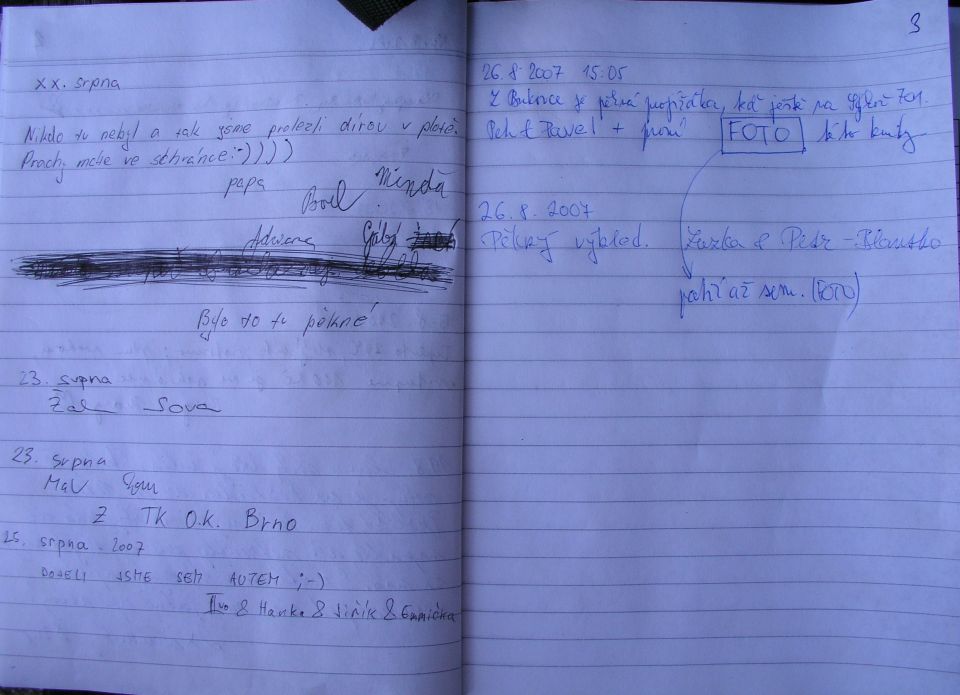 xx. srpna
Nikdo tu nebyl a tak jsme prolezli dírou v plotě.
Prachy máte ve schránce :-))))
papa
Minda
Adriana Gábi
Bylo to tu pěkné
23. srpna
Sova
23. srpna
Z TK O.K. Brno
25. srpna 2007
DOJELI JSME SEM AUTEM ;-)
Ivo & Hanka & Jiřík & Emmička
3
26.8.2007 15:05
Z Bukovce je pěkná
Petr & Pavel + první FOTO této knihy
26.8.2007
Pěkný výhled. Zuzka & Petr - Blansko
patří až sem. (FOTO)